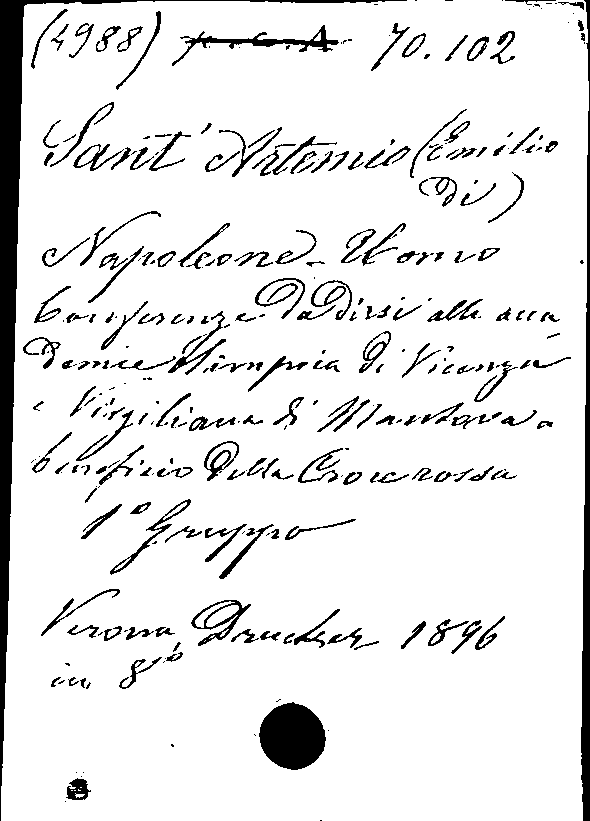 (4988) 70.102
Sant' Artemio (Emilio
di)
Napoleone - Uomo
Conferenze da dirsi alle acca
demie Olimpica di Vicenza
e Virgiliana di Mantova a
beneficio della Croce rossa
1° Gruppo
Verona, Drucker 1896
in 8°